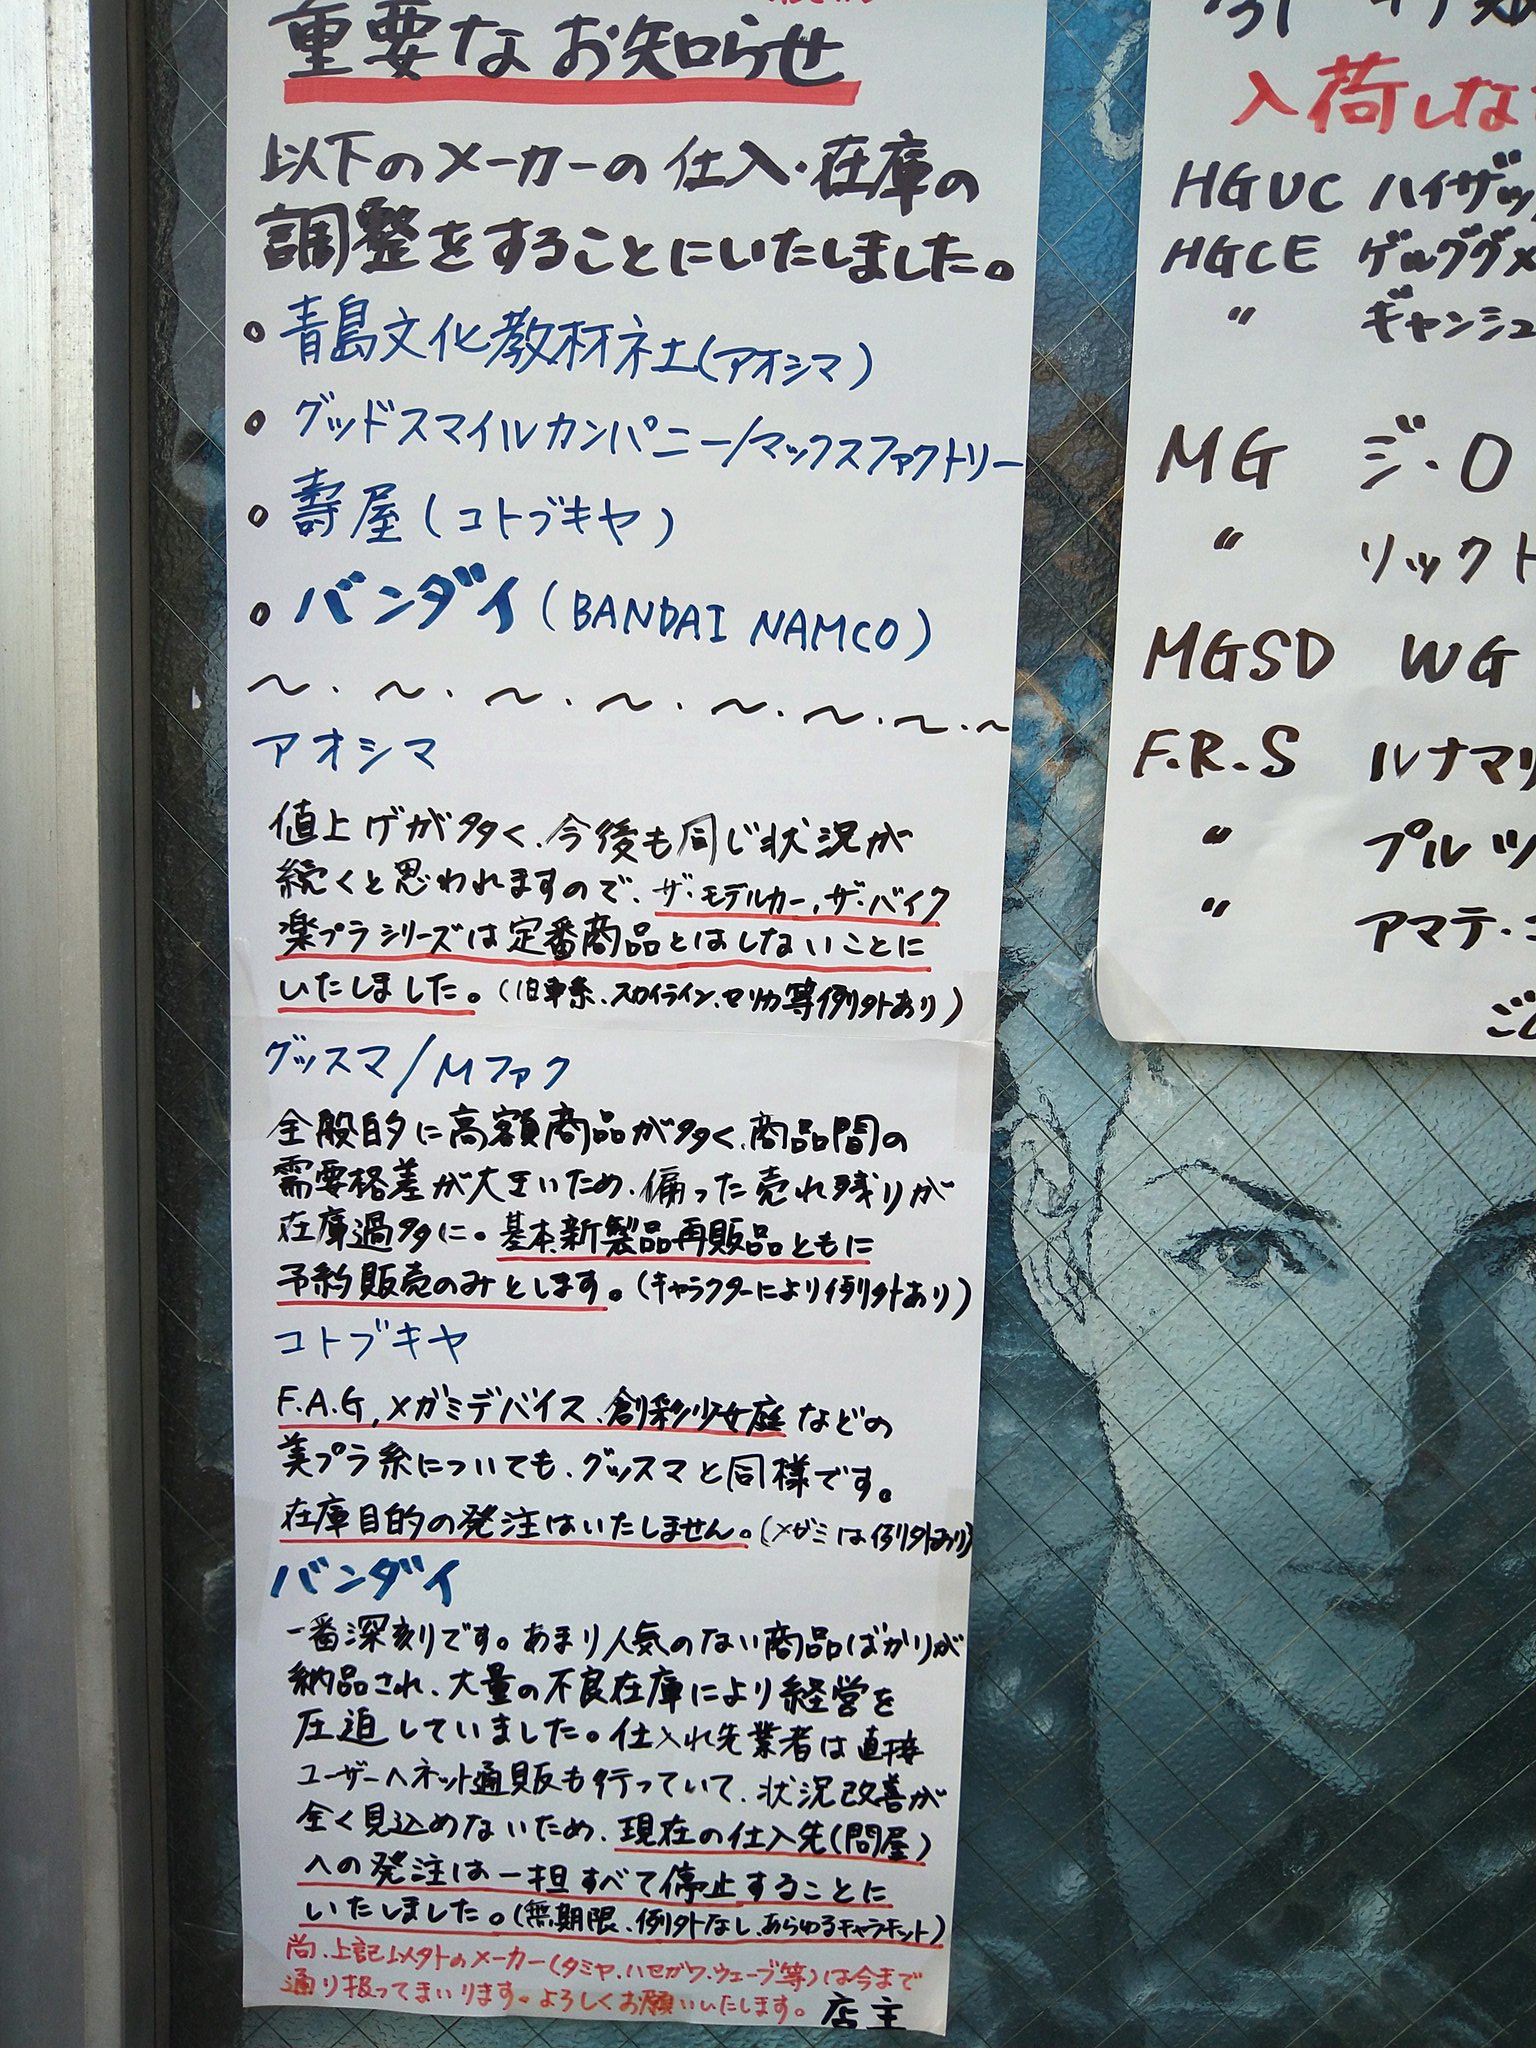 重要なお知らせ
以下のメーカーの仕入・在庫の
調整をすることにいたしました。
・青島文化教材社(アオシマ)
・グッドスマイルカンパニー/マックスファクトリー
・壽屋(コトブキヤ)
・バンダイ(BANDAI NAMCO)
〜・〜・〜・〜・〜・〜・〜・〜
アオシマ
値上げが多く、今後も同じ状況が
続くと思われますので、ザ・モデルカー、ザ・バイク
楽プラシリーズは定番商品とはしないことに
いたしました。(旧車系、スカイライン、セリカ等例外あり)
グッスマ/Mファク
全般的に高額商品が多く、商品間の
需要格差が大きいため、偏った売れ残りが
在庫過多に。基本、新製品再販品ともに
予約販売のみとします。(キャラクターにより例外あり)
コトブキヤ
F.A.G,メガミデバイス、創彩少女庭などの
美プラ系についても、グッスマと同様です。
在庫目的の発注はいたしません。(メガミは例外あり)
バンダイ
一番深刻です。あまり人気のない商品ばかりが
納品され、大量の不良在庫により経営を
圧迫していました。仕入れ先業者は直接
ユーザーへネット通販も行っていて、状況改善が
全く見込めないため、現在の仕入先(問屋)
への発注は一担すべて停止することに
いたしました。(無期限、例外なし、あらゆるキャラキット)
尚、上記以外のメーカー(タミヤ、ハセガワ、ウェーブ等)は今まで
通り扱ってまいります。よろしくお願いいたします。 店主
入荷しな
HGUC ハイザッ
HGCE ゲルググメ
〃 ギャンシュ
MG ジ・O
〃 リックド
MGSD WG
F.R.S ルナマリ
〃 プルツ
〃 アマテ・